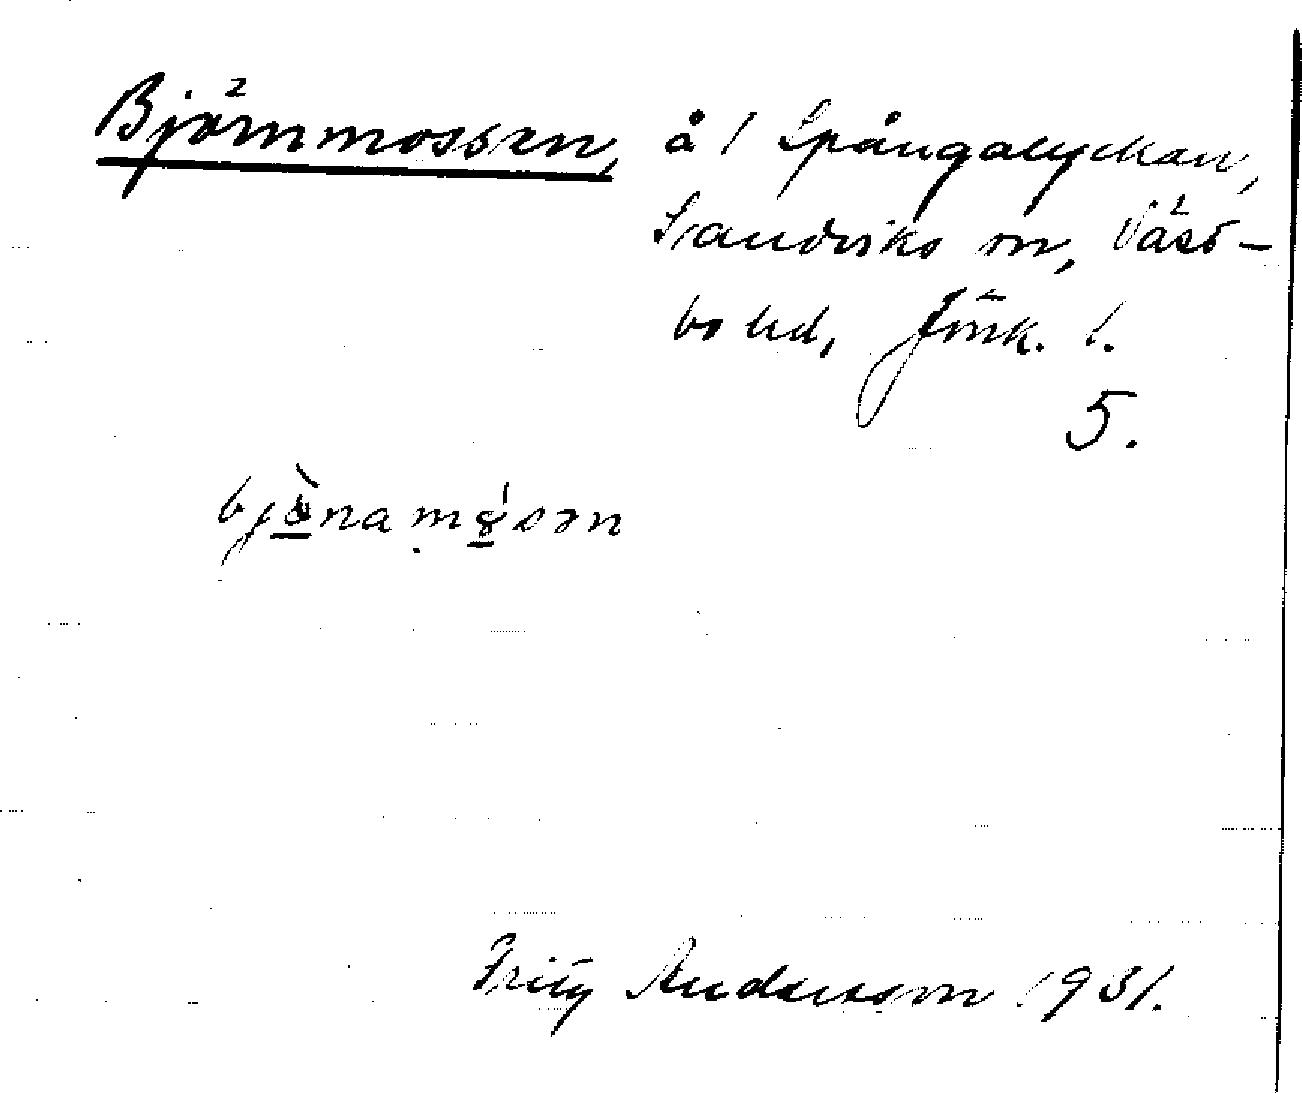 Björnmossen, å 1 Spångalyckan,
Sandviks sn, Väst-
bo hd, Jönk. l.
5.
bjönamosən
Fritz Andersson 1931.